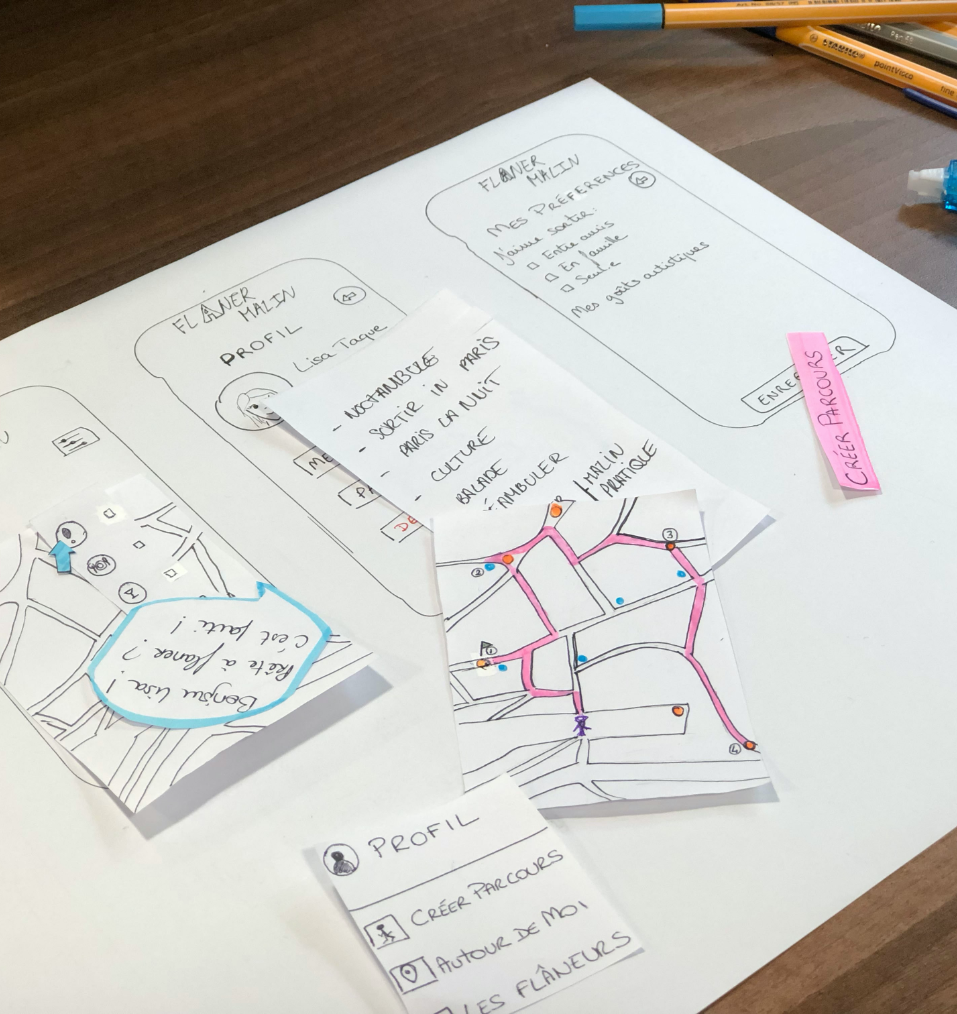 STABILO
pointVisco
fine
FLÂNER
MALIN
MES PRÉFÉRENCES
J'aime sortir:
Entre amis
En famille
Seule
Mes goûts artistiques
CRÉER PARCOURS
FLÂNER
MALIN
PROFIL
Lisa Taque
ME
PA
DE
- NOCTAMBULE
- SORTIR IN PARIS
- PARIS LA NUIT
- CULTURE
BALADE
MALIN
PRATIQUE
Bonjour Lisa!
Prête à flâner?
C'est parti!
1
2
3
4
PROFIL
CRÉER PARCOURS
AUTOUR DE MOI
LES FLÂNEURS